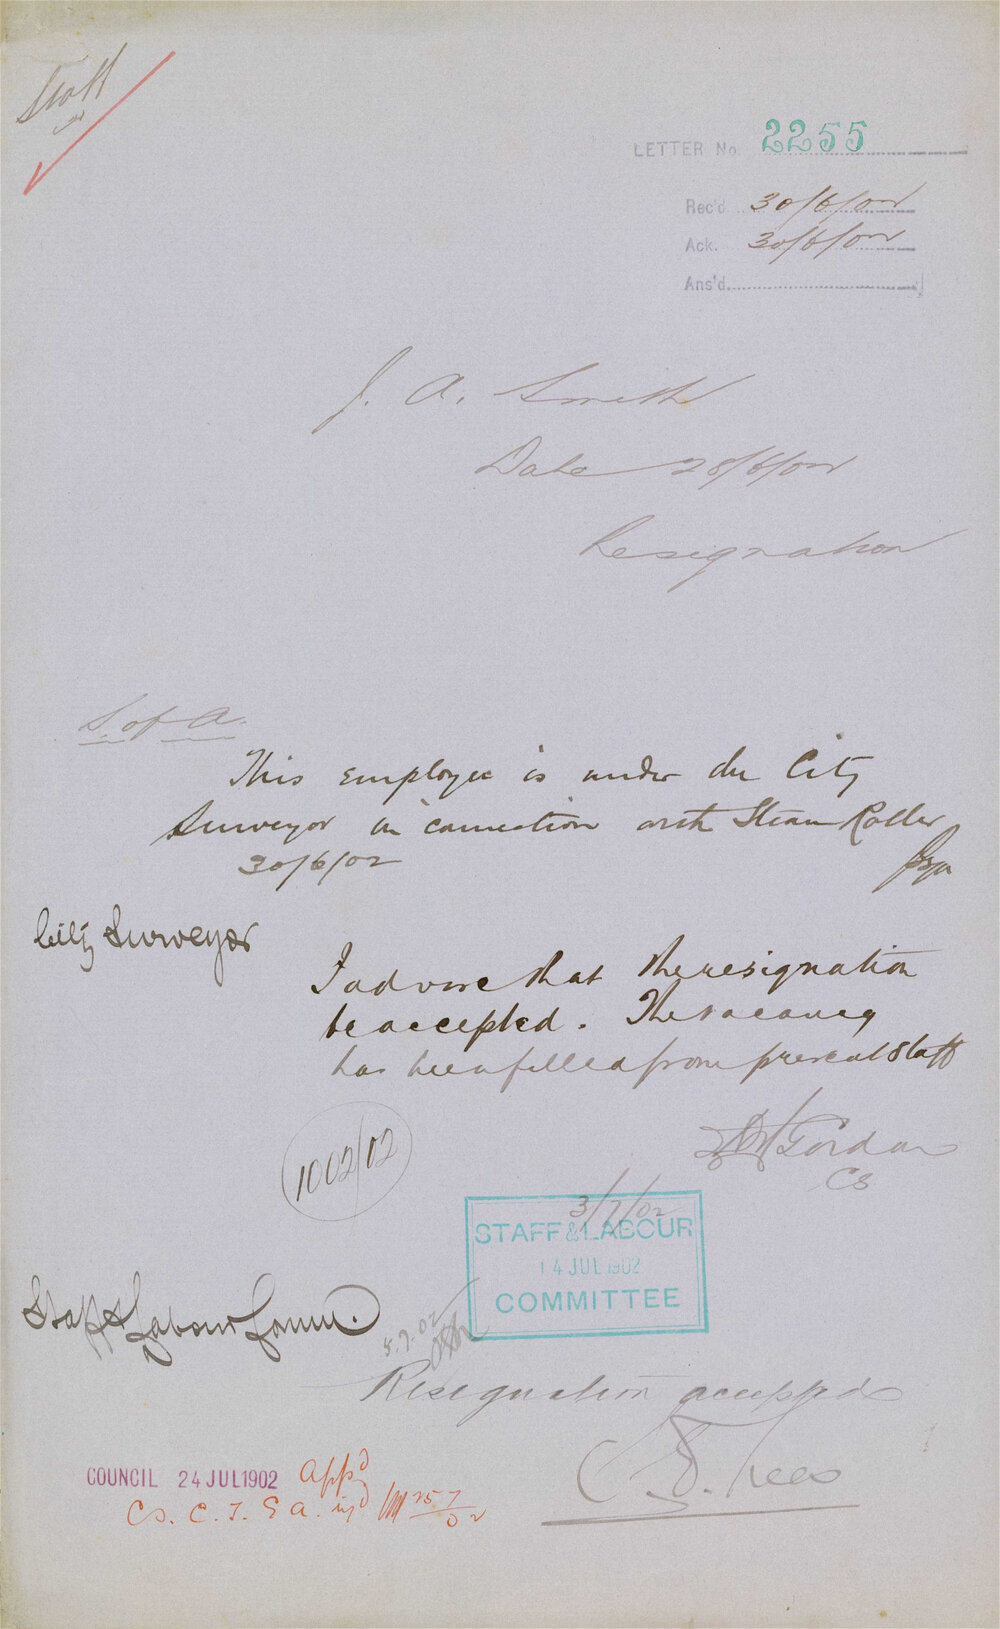 Staff
LETTER No 2255
Rec'd 30/6/02
Ack. 30/6/02
Ans'd.
J. A. Smith
Date 28/6/02
Resignation
S. of A.
This employee is under the City
Surveyor in connection with Steam Roller
30/6/02
City Surveyor
I advise that the resignation
be accepted. The vacancy
has been filled from present staff
Gordon
CS
3/7/02
1002/02
STAFF & LABOUR
14 JUL 1902
COMMITTEE
Staff & Labour Comm.
5.7.02
Resignation accepted
COUNCIL 24 JUL 1902 App'd
CS. C. T. & A. 25/7/02